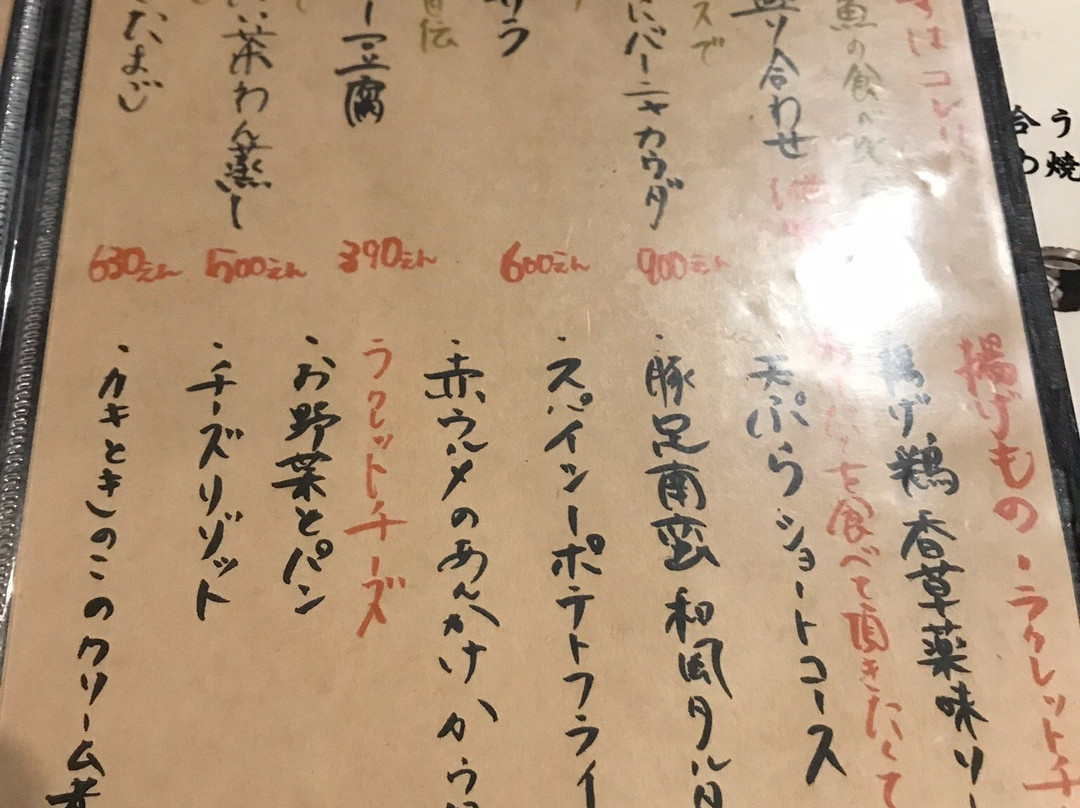 すはコレ
魚の食べ
盛り合わせ
スで
にバーニャカウダ
900えん
サラ
600えん
直伝
ー豆腐
390えん
い茶わん蒸し
500えん
たまご
630えん
揚げもの・ラクレットチ
揚げ鶏 香草薬味ソー
を食べて頂きたくて
天ぷらショートコース
豚足南蛮 和風タルタ
・スパイシーポテトフライ
・赤ウルメのあんかけ かつ
ラクレットチーズ
・お野菜とパン
・チーズリゾット
・カキときのこのクリーム煮
合う
の焼